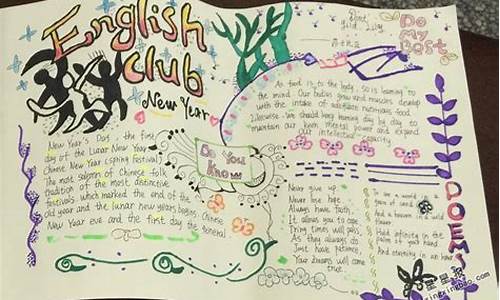 English
club
New Year
Do
My
Best
As food is to the body, so is learning to
the mind. Our bodies grow and muscles develop
with the intake of adequate nutritious food
Likewise, we should keep learning day by day to
maintain our keen mental power and expand
our intellectual capacity
New Year's Day, the first
day of the Lunar New Year
Chinese New Year (spring Festival)
The most solemn of Chinese folk
tradition of the most distinctive
festivals, which marked the end of the
old year and the lunar new years begins. Chinese
New Year eve and the first day the general
Do You
Know
Never give up,
Never lose hope.
Always have faith,
It allows you to cope
Trying times will pass,
As they always do
Just have patience,
Your dreams will come
true
To see a world in a
grain of sand.
And a heaven in a wild
Hold infinity in the
palm of your hand
And eternity in an hour
POEMS